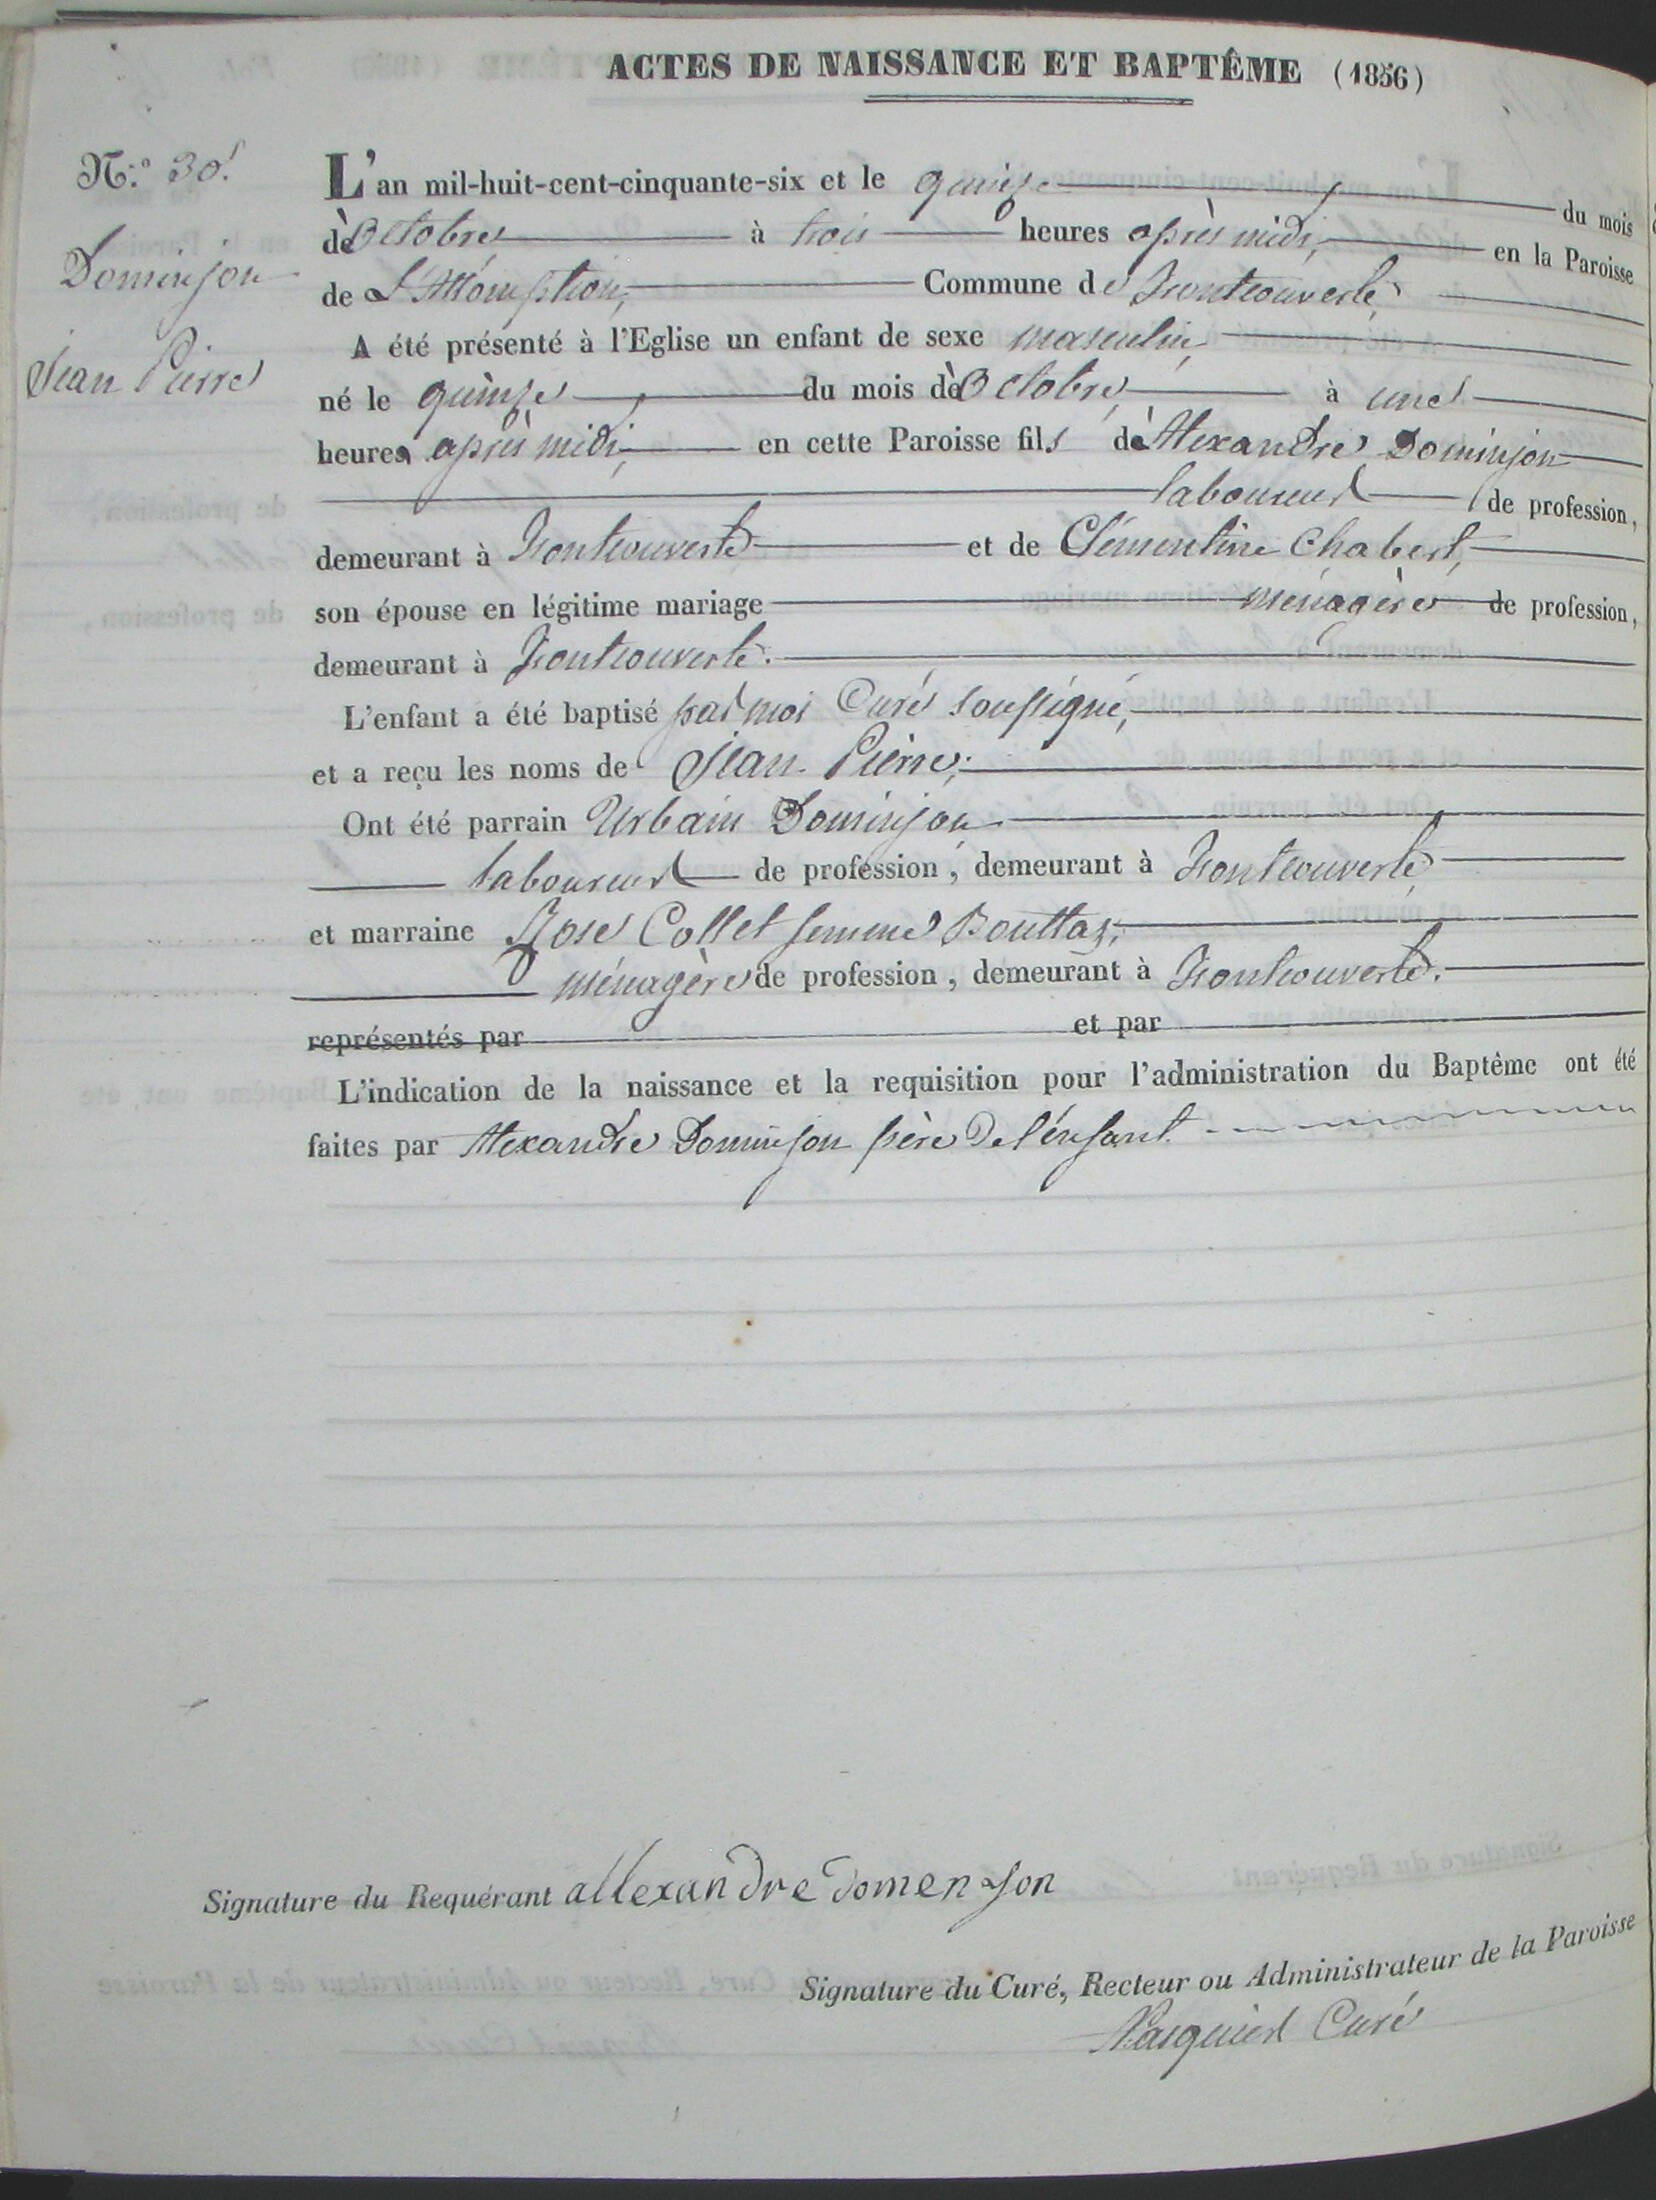 ACTES DE NAISSANCE ET BAPTÊME (1856)
N.º 30.
Dominjon
Jean Pierre
L'an mil-huit-cent-cinquante-six et le quinze du mois
de Octobre à trois heures après midi, en la Paroisse
de L'Assomption, Commune de Montrouverte,
A été présenté à l'Eglise un enfant de sexe masculin,
né le quinze du mois de Octobre à une
heures après midi, en cette Paroisse fils de Alexandre Dominjon
laboureur de profession,
demeurant à Fontcouverte et de Clémentine Chabert,
son épouse en légitime mariage ménagère de profession,
demeurant à Fontcouverte.
L'enfant a été baptisé par moi Curé soussigné,
et a reçu les noms de Jean Pierre;
Ont été parrain Urbain Dominjon
laboureur de profession, demeurant à Fontcouverte,
et marraine Rose Collet femme Bouttaz,
ménagère de profession, demeurant à Fontcouverte.
représentés par et par
L'indication de la naissance et la requisition pour l'administration du Baptême ont été
faites par Alexandre Dominjon père de l'enfant.
Signature du Requérant allexandre domenjon
Signature du Curé, Recteur ou Administrateur de la Paroisse
Curé